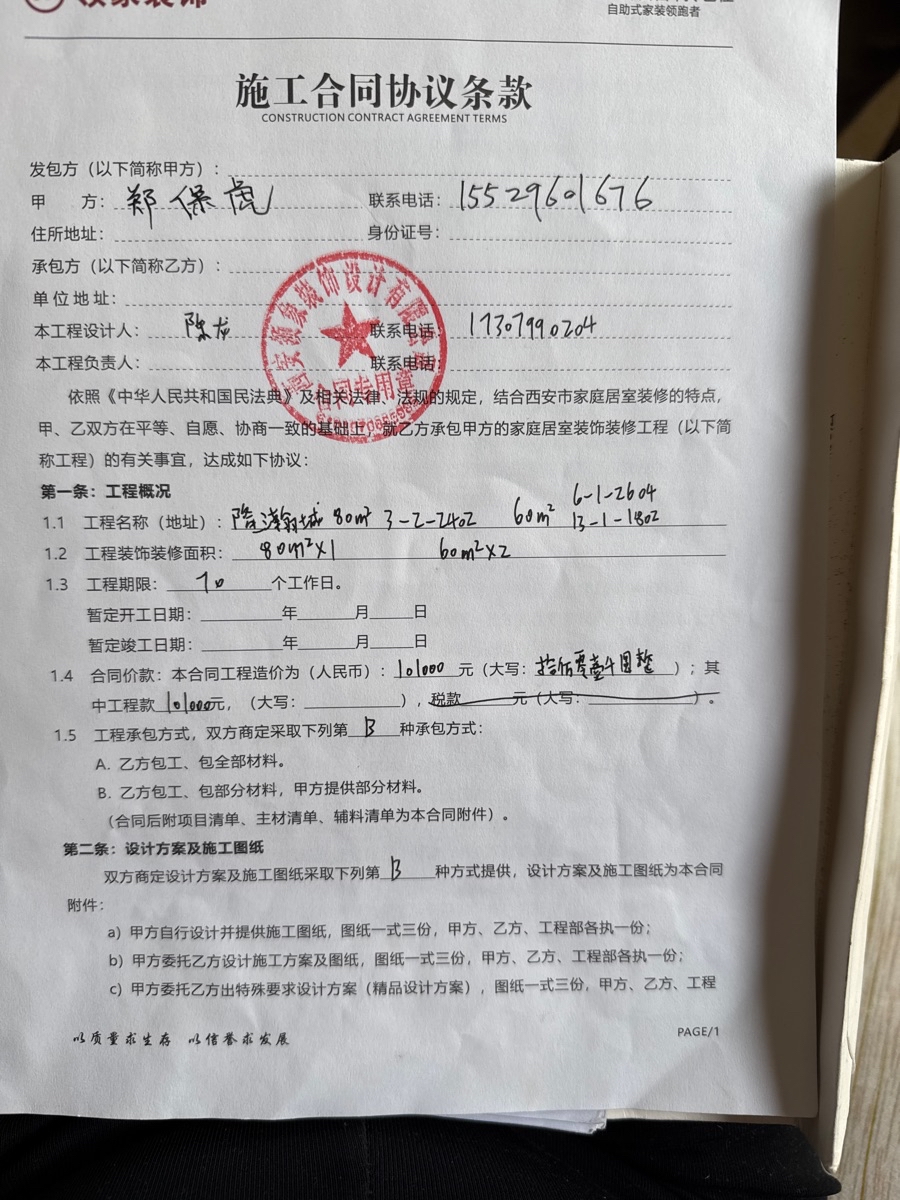 自助式家装领跑者
施工合同协议条款
CONSTRUCTION CONTRACT AGREEMENT TERMS
发包方（以下简称甲方）：
甲 方：郑保虎 联系电话：15529601676
住所地址： 身份证号：
承包方（以下简称乙方）：
单位地址：
本工程设计人：陈龙 联系电话：17307990204
本工程负责人： 联系电话：
装饰设计有限
合同专用章
依照《中华人民共和国民法典》及相关法律、法规的规定，结合西安市家庭居室装修的特点，
甲、乙双方在平等、自愿、协商一致的基础上，就乙方承包甲方的家庭居室装饰装修工程（以下简
称工程）的有关事宜，达成如下协议：
第一条：工程概况
6-1-2604
1.1 工程名称（地址）：城 80m² 3-2-2402 60m² 13-1-1802
1.2 工程装饰装修面积：80m²×1 60m²×2
1.3 工程期限：70个工作日。
暂定开工日期：____年____月____日
暂定竣工日期：____年____月____日
1.4 合同价款：本合同工程造价为（人民币）：101000元（大写：拾万零壹千圆整）；其
中工程款101000元，（大写：____），税款____元（大写：____）。
1.5 工程承包方式，双方商定采取下列第B种承包方式：
A. 乙方包工、包全部材料。
B. 乙方包工、包部分材料，甲方提供部分材料。
（合同后附项目清单、主材清单、辅料清单为本合同附件）。
第二条：设计方案及施工图纸
双方商定设计方案及施工图纸采取下列第B种方式提供，设计方案及施工图纸为本合同
附件：
a）甲方自行设计并提供施工图纸，图纸一式三份，甲方、乙方、工程部各执一份；
b）甲方委托乙方设计施工方案及图纸，图纸一式三份，甲方、乙方、工程部各执一份；
c）甲方委托乙方出特殊要求设计方案（精品设计方案），图纸一式三份，甲方、乙方、工程
以质量求生存 以信誉求发展
PAGE/1